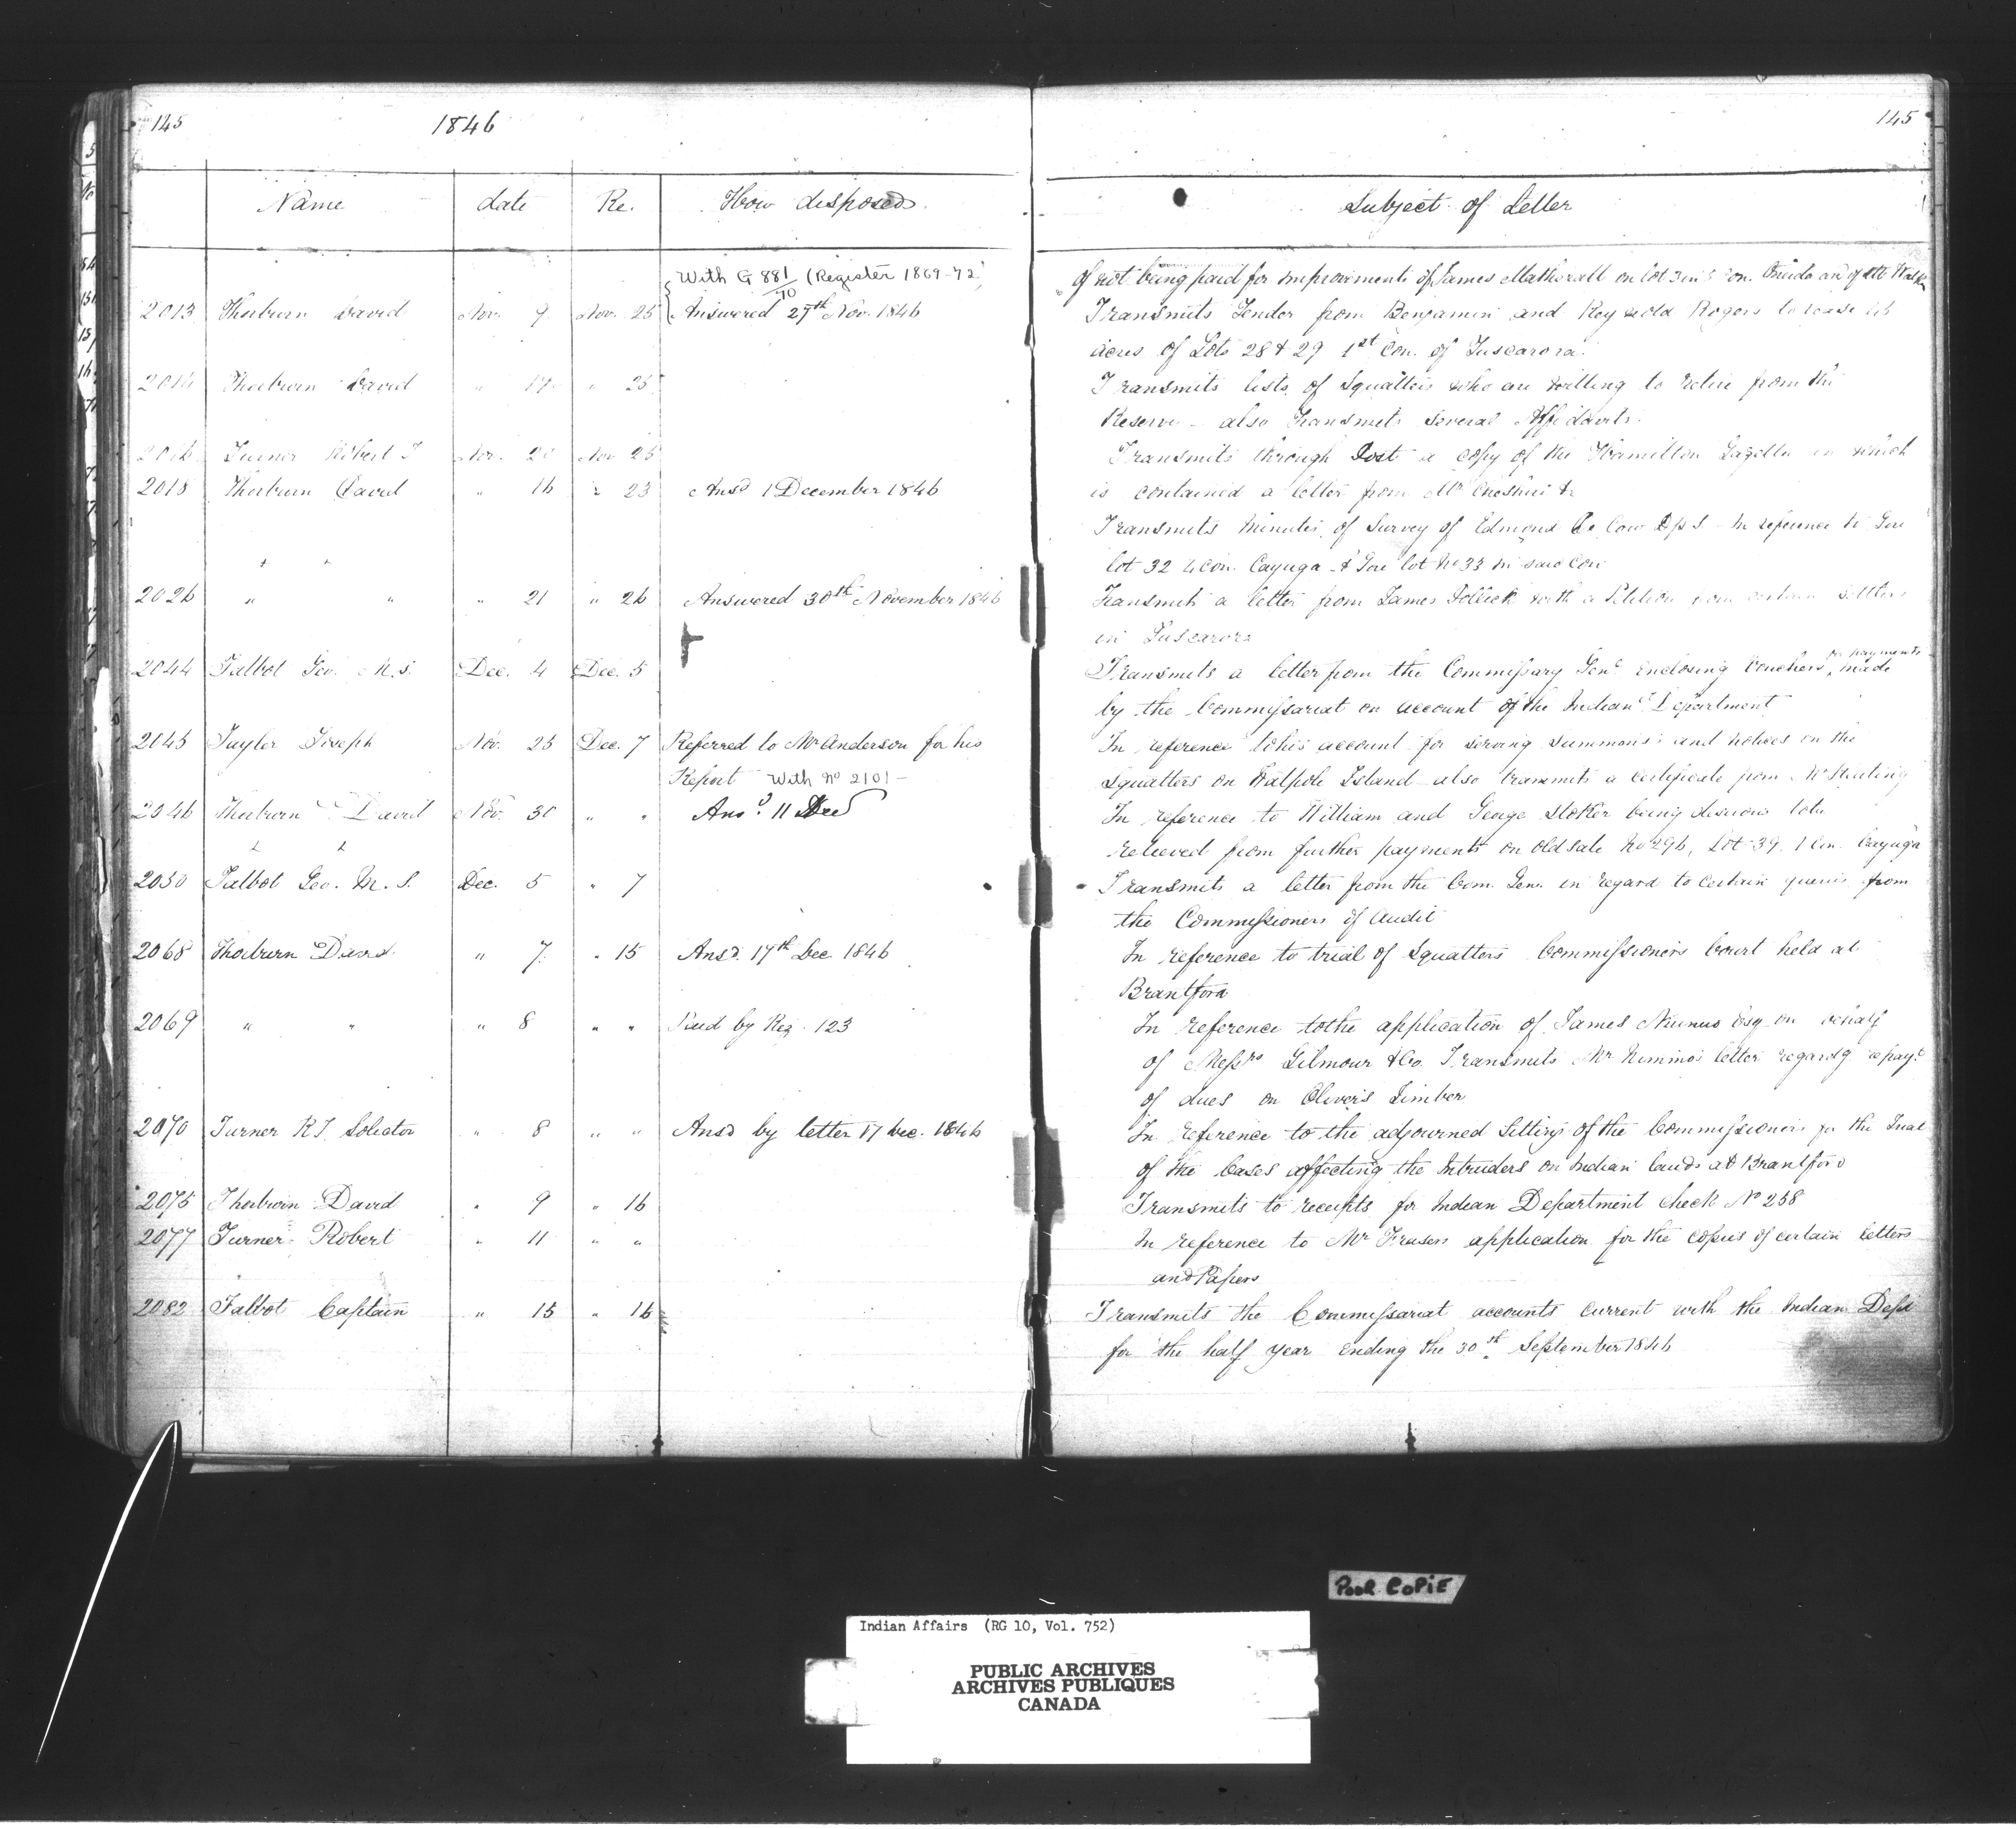 145 1846
Name date Re. How disposed
With G 881/70 (Register 1869-72)
2013 Thorburn David Nov. 9 Nov. 25 Answered 27th Nov. 1846
Thorburn David " " 25
Turner Robert Nov. Nov 25
2018 Thorburn David " 16 " 23 Ansd 1 December 1846
2026 " " " 21 " 26 Answered 30th November 1846
2044 Talbot Geo. M. S. Dec. 4 Dec. 5
2045 Taylor Joseph Nov. 25 Dec. 7 Referred to Mr Anderson for his
Report With No 2101 -
2046 Thorburn David Nov. 30 " " Ansd 11 Dec
2050 Talbot Geo. M. S. Dec. 5 " 7
2068 Thorburn David " 7 " 15 Ansd. 17th Dec. 1846
2069 " " " 8 " " Paid by Req. 123
2070 Turner RJ Soliciter " 8 " " Ansd by letter 17 Dec. 1846
2075 Thorburn David " 9 " 16
2077 Turner Robert " 11 " "
2082 Talbot Captain " 15 " 16
145
Subject of Letter
of not being paid for improvements of James Matherall on lot 3 in Con. Oneida and of
Transmits Tender from Benjamin and Reynold Rogers to lease
acres of Lots 28 & 29 1st Con. of Tuscarora.
Transmits lists of Squatters who are willing to retire from the
Reserve - also transmits several Affidavits.
Transmits through Post a copy of the Hamilton Gazette in which
is contained a letter from Mr Cheshire &c
Transmits Minutes of Survey of Edmond De Cow Dp S - In reference to Gore
lot 32 4 Con. Cayuga & Gore lot No 33 in said Con
Transmits a letter from James with a Petition from certain settlers
in Tuscarora
Transmits a letter from the Commissary Genl enclosing Vouchers for payments made
by the Commissariat on account of the Indian Department
In reference to his account for serving summons's and notices on the
Squatters on Walpole Island also transmits a certificate from Mr Keating
In reference to William and George Stoker being desirous to be
relieved from further payments on old sale No 296, Lot 39. 1 Con. Cayuga
Transmits a letter from the Com. Gen. in regard to certain queries from
the Commissioners of Audit
In reference to trial of Squatters Commissioners Court held at
Brantford
In reference to the application of James Nimmo Esq on behalf
of Messrs Gilmour & Co. Transmits Mr Nimmo's letter regardg repayt
of dues on Oliver's Timber
In reference to the adjourned Sittings of the Commissioners for the Trial
of the Cases affecting the Intruders on Indian lands at Brantford
Transmits to receipts for Indian Department Check No 258
In reference to Mr Frasers application for the copies of certain letters
and Papers
Transmits the Commissariat accounts current with the Indian Dept
for the half year ending the 30th September 1846
Poor Copie
Indian Affairs (RG 10, Vol. 752)
PUBLIC ARCHIVES
ARCHIVES PUBLIQUES
CANADA